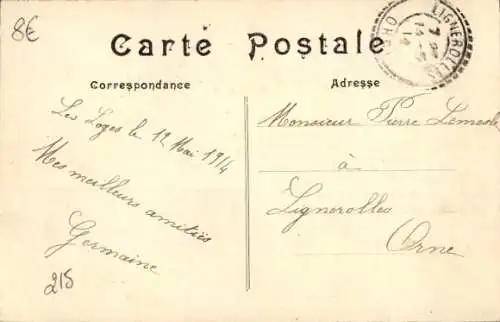 8€
Carte Postale
LIGNEROLLES
ORNE
Correspondance
Adresse
Les Loges le 12 Mai 1914
Mes meilleurs amitiés
Germaine
215
Monsieur Pierre
à
Lignerolles
Orne